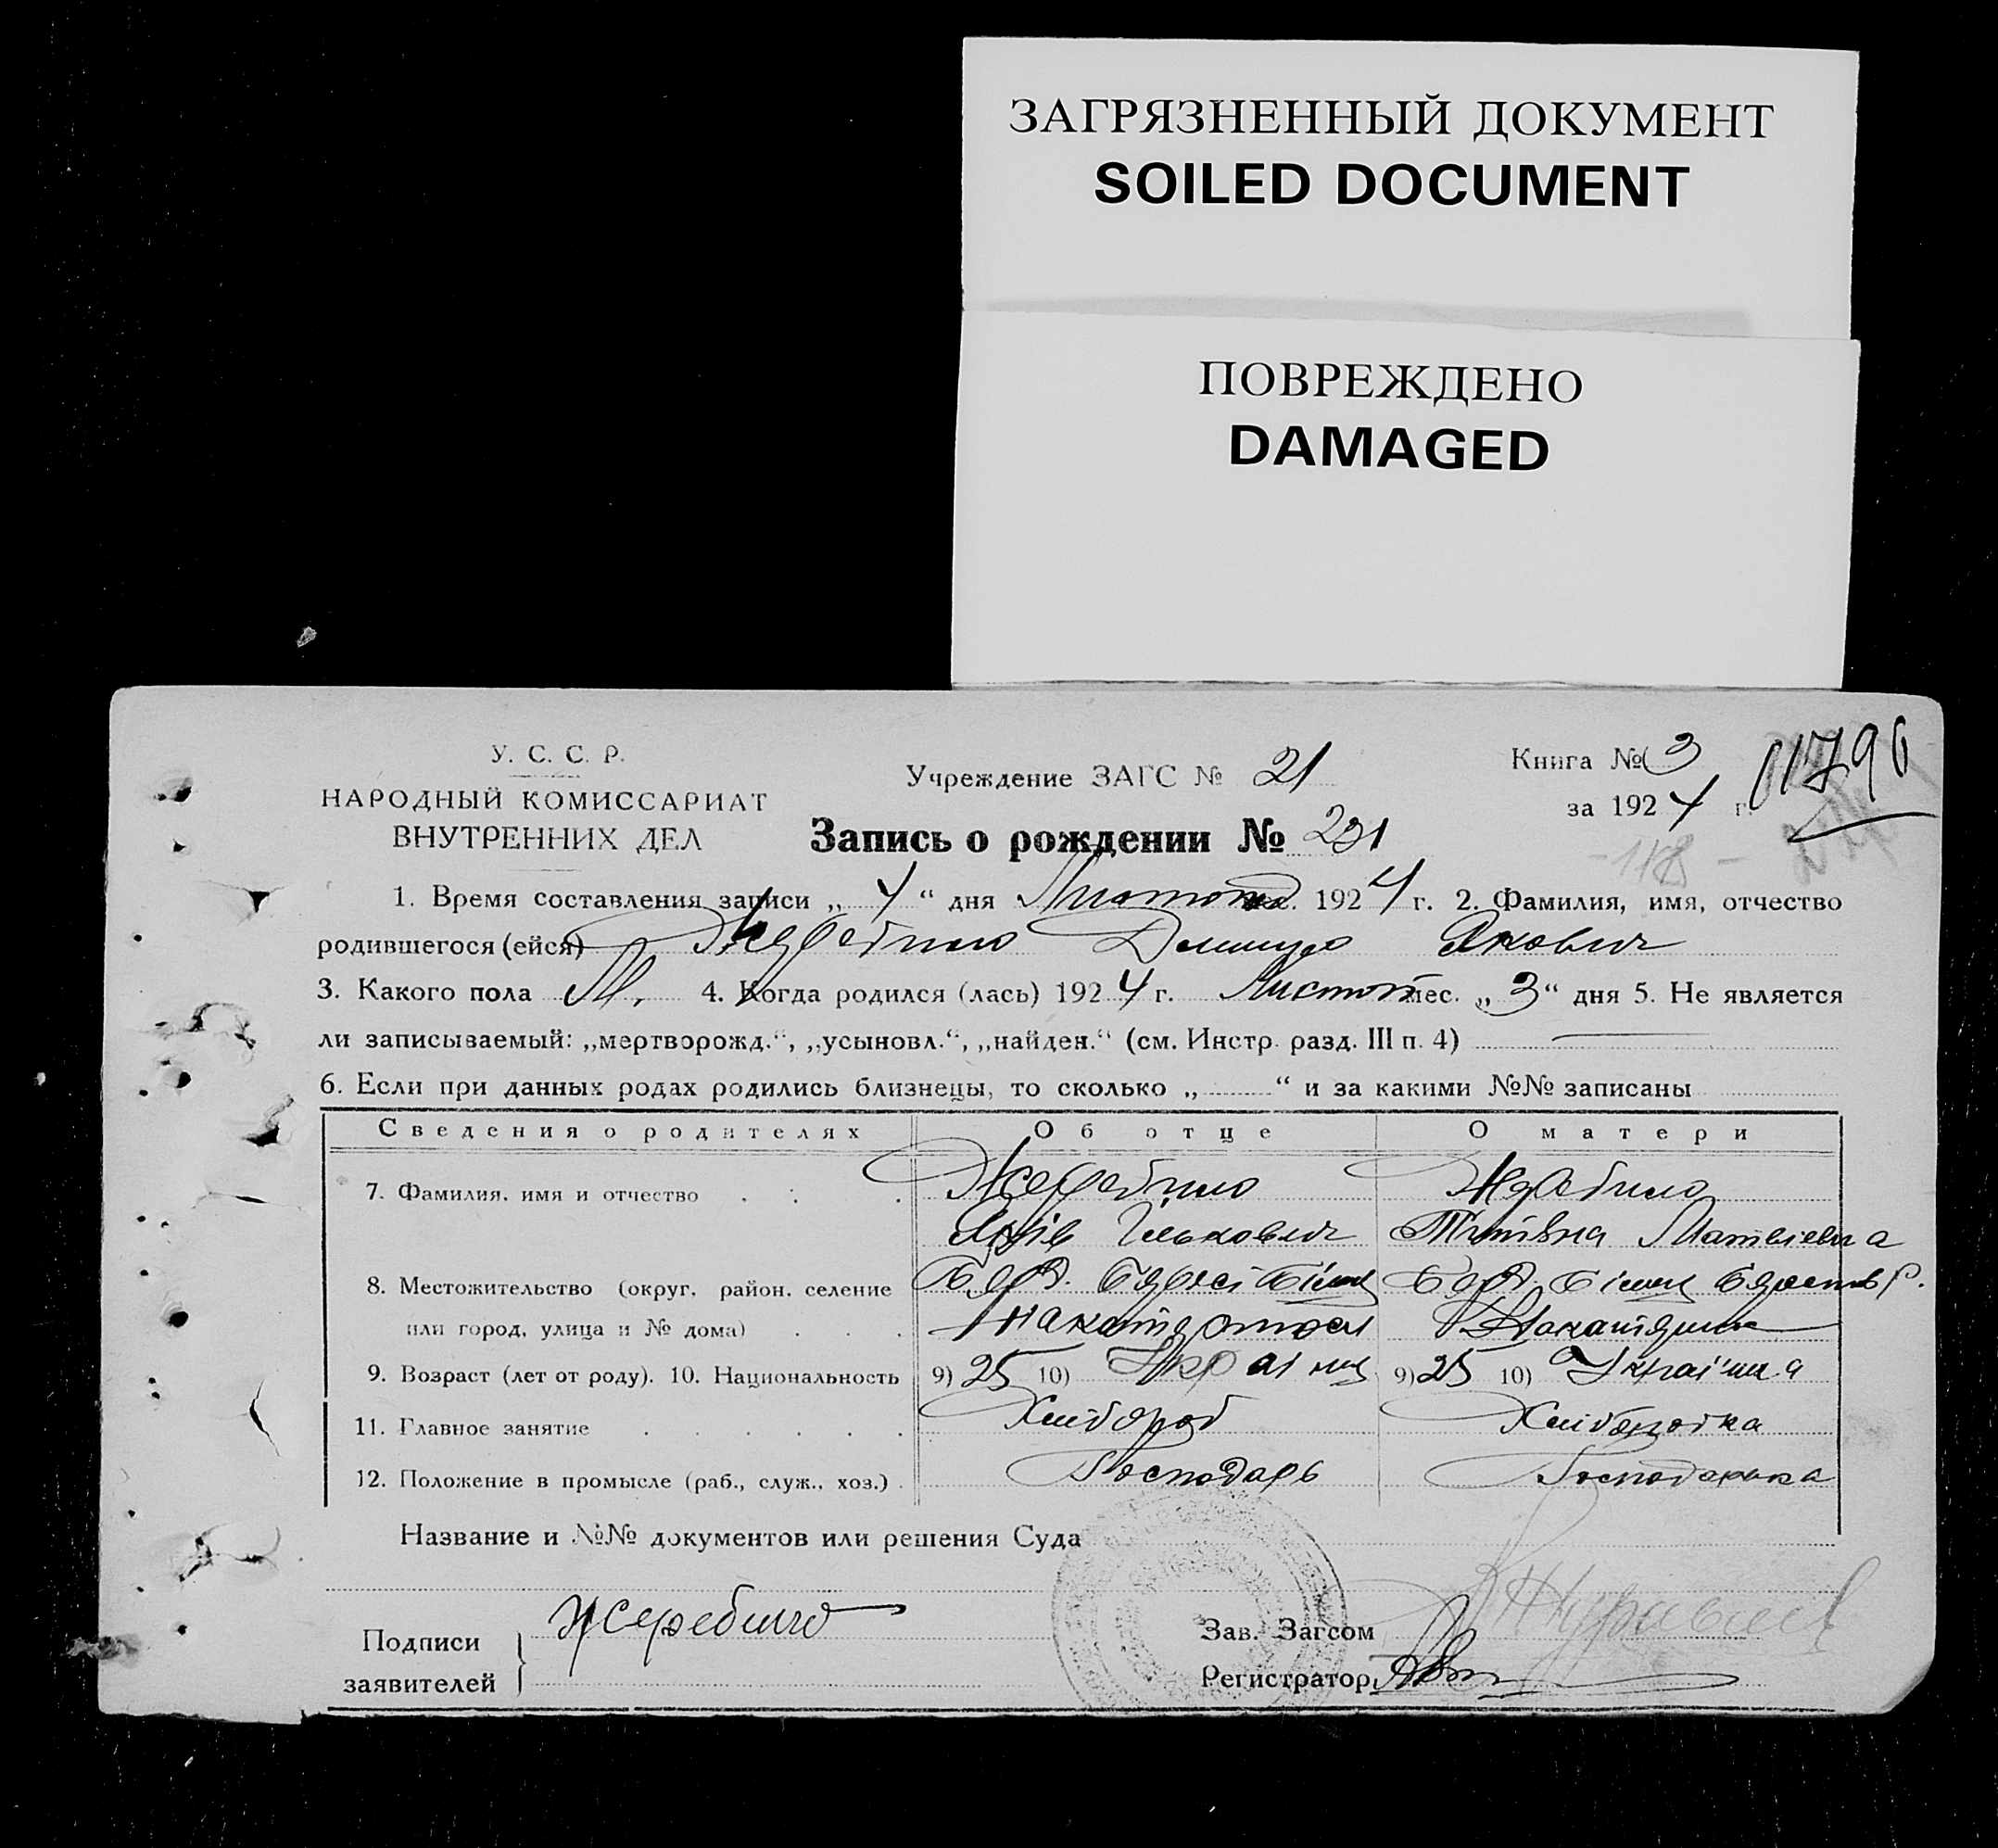 ЗАГРЯЗНЕННЫЙ ДОКУМЕНТ
SOILED DOCUMENT
ПОВРЕЖДЕНО
DAMAGED
У. С. С. Р.
НАРОДНЫЙ КОМИССАРИАТ
ВНУТРЕННИХ ДЕЛ
Учреждение ЗАГС № 21
Книга № 3
за 1924 г.
Запись о рождении № 231
- 118 -
1. Время составления записи „ 4 “ дня 1924 г. 2. Фамилия, имя, отчество
родившегося (ейся) Жеребило Данило Якович
3. Какого пола М. 4. Когда родился (лась) 1924 г. Листоп мес. „ 3 “ дня 5. Не является
ли записываемый: „мертворожд.“, „усыновл.“, „найден.“ (см. Инстр. разд. III п. 4)
6. Если при данных родах родились близнецы, то сколько „ “ и за какими №№ записаны
Сведения о родителях Об отце О матери
7. Фамилия, имя и отчество Жеребило Жеребило
Яків Ількович Матвіевна
8. Местожительство (округ, район, селение
или город, улица и № дома)
9. Возраст (лет от роду). 10. Национальность 9) 25 10) 9) 25 10) Україн а
11. Главное занятие Хлібороб Хліборобка
12. Положение в промысле (раб., служ., хоз.) Господарь Господарька
Название и №№ документов или решения Суда
Подписи
заявителей
Жеребило
Зав. Загсом
Регистратор